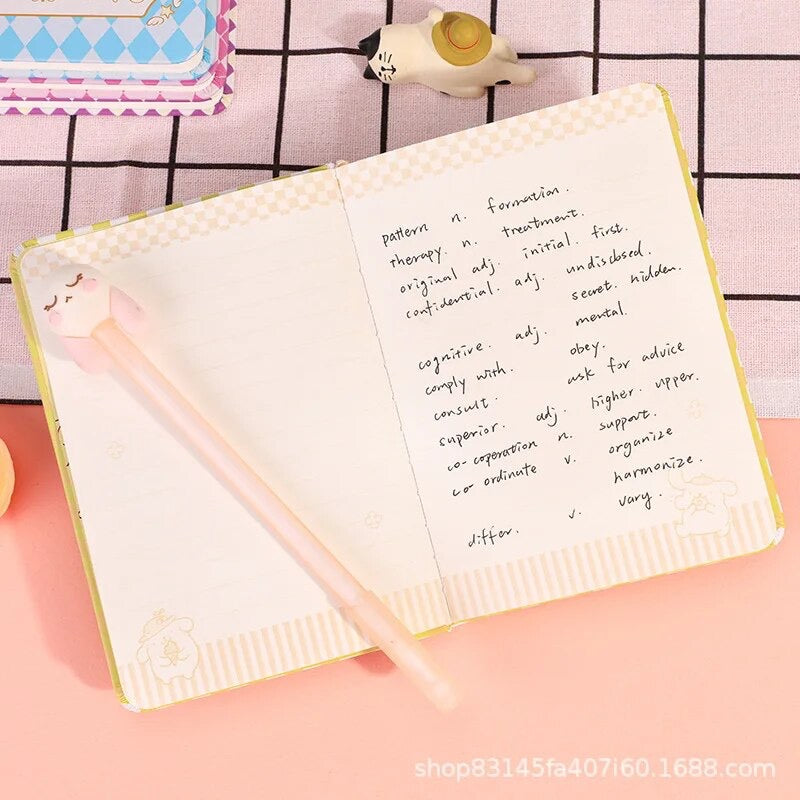 pattern n. formation.
therapy. n. treatment.
original adj. initial. first.
confidential. adj. undisclosed.
secret. hidden.
cognitive. adj. mental.
comply with. obey.
consult. ask for advice
superior. adj. higher. upper.
co-coperation n. support.
co-ordinate v. organize
harmonize.
differ. v. vary.
shop83145fa407i60.1688.com